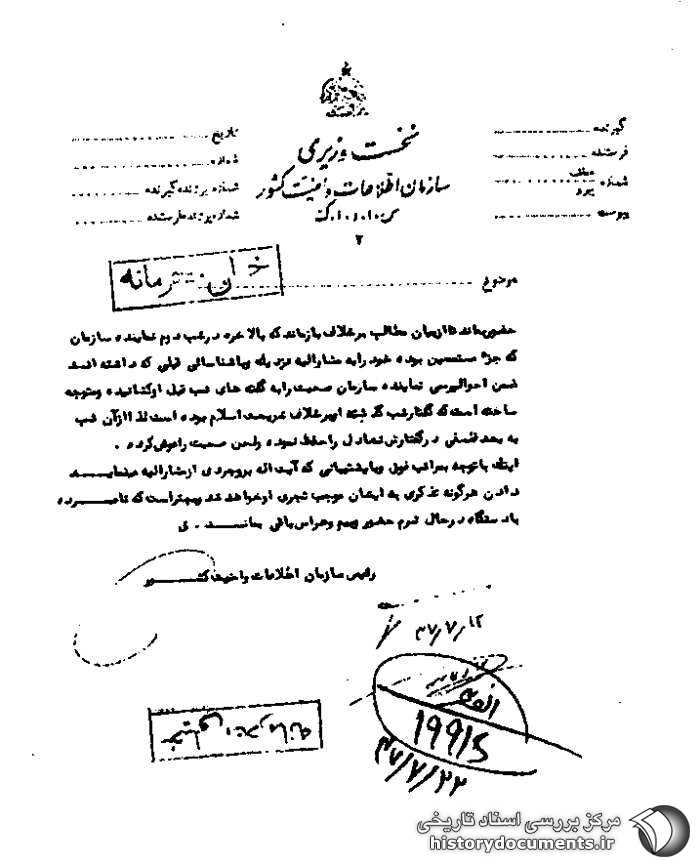 نخست وزیری
سازمان اطلاعات و امنیت کشور
ک.و.ا.ا.
۲
گیرنده
فرستنده
شماره
پیوست
تاریخ
شماره
شماره پرونده گیرنده
شماره پرونده فرستنده
خیلی محرمانه
موضوع
حضور بهم رساند تا از بیان مطالب بر خلاف بازماند که بالاخره در شب دوم نماینده سازمان
که جزء مستمعین بوده خود را به مشارالیه نزدیک و با شناسائی قبلی که داشته است
ضمن احوالپرسی نماینده سازمان صحبت را به گفته های شب قبل او کشانیده و متوجه
ساخته است که گفتار شب گذشته او بر خلاف شریعت اسلام بوده است لذا از آن شب
به بعد در گفتارش تعادل را حفظ نموده و لحن صحبت را عوض کرده .
اینک با توجه به مراتب فوق و با پشتیبانی که آیت اله بروجردی از مشارالیه مینمایــــد
دادن هرگونه تذکری به ایشان موجب تجری او خواهد شد بهتر است که نامبـــرده
با دستگاه در حال عدم حضور و بیم و هراس باقی بمانــــد . ی
رئیس سازمان اطلاعات و امنیت کشـــــور
۳۷/۷/۱۲
۱۹۹۱۵
۳۷/۷/۲۲
خیلی محرمانه
مرکز بررسی اسناد تاریخی
historydocuments.ir